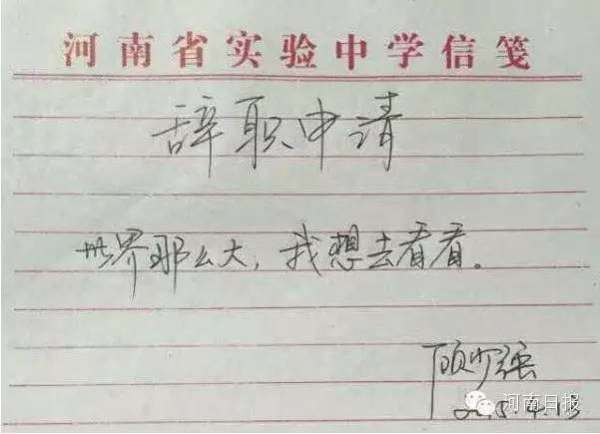 河南省实验中学信笺
辞职申请
世界那么大，我想去看看。
顾少强
河南日报
2015.4.13